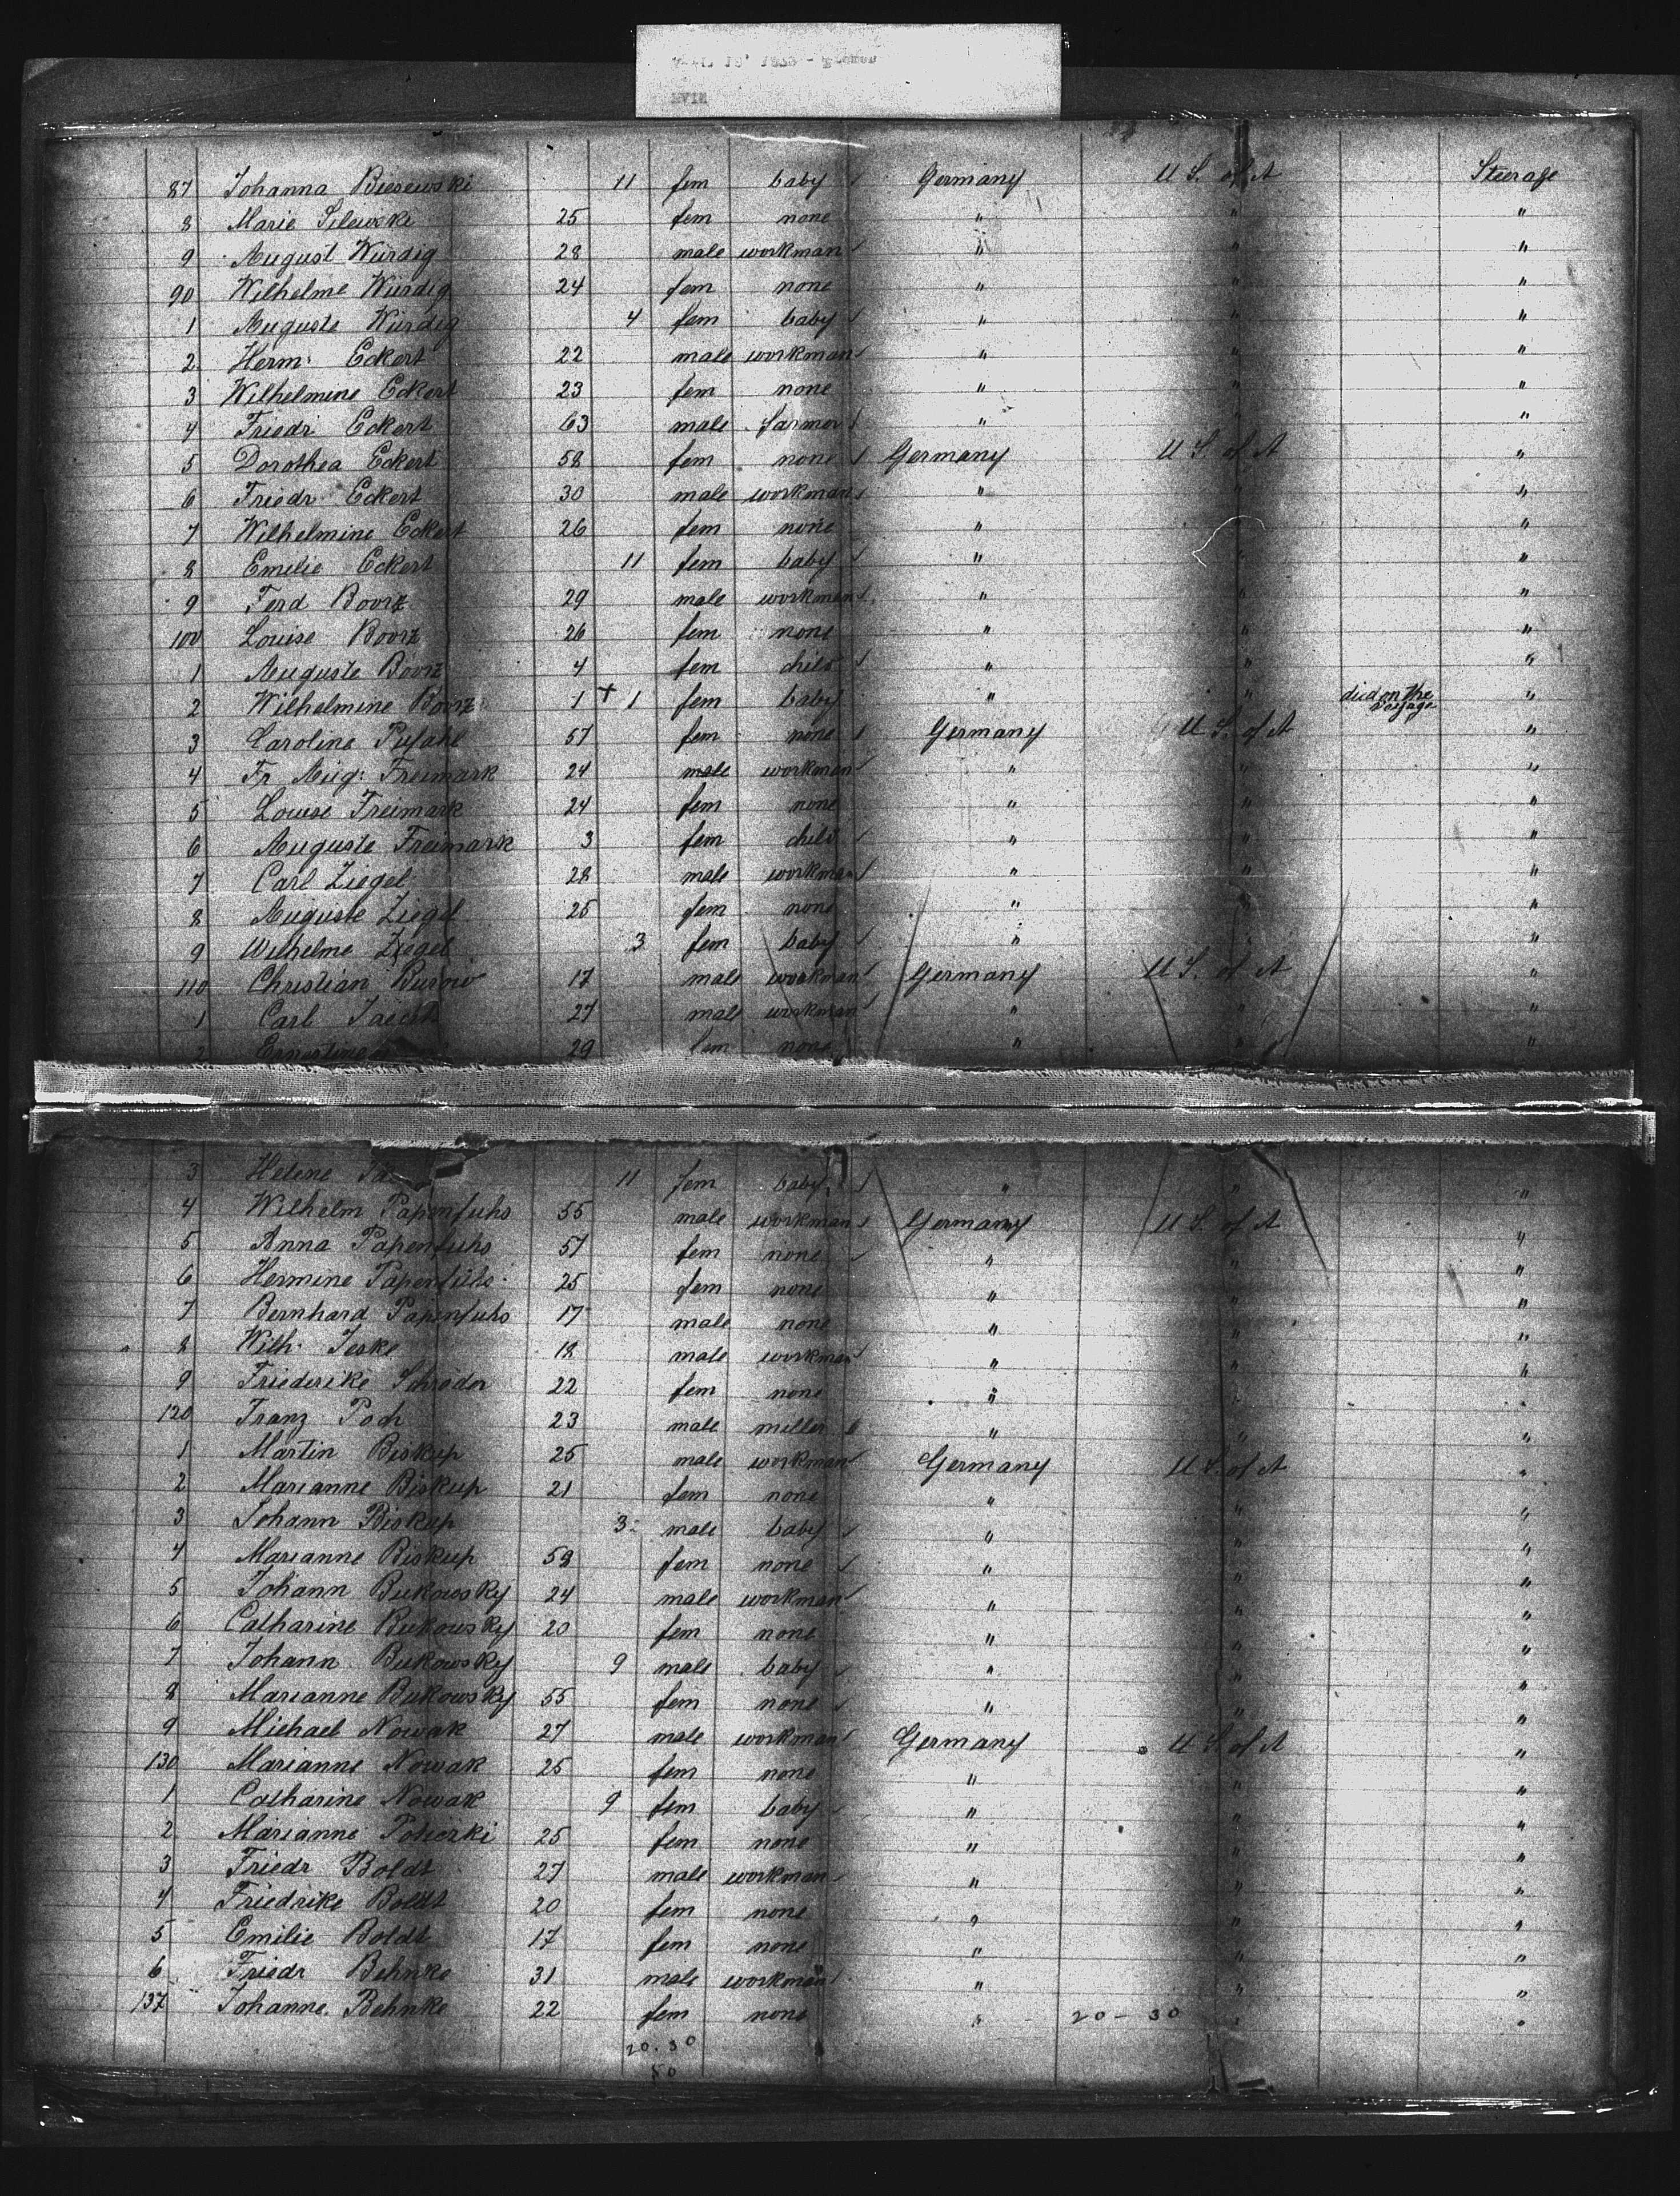 87 Johanna Biesewski 11 fem baby Germany U S. of A Steerage
8 Marie 25 fem none " " "
9 August Würdig 28 male workman " " "
90 Wilhelme Würdig 24 fem none " " "
1 Auguste Würdig 4 fem baby " " "
2 Herm: Eckert 22 male workman " " "
3 Wilhelmine Eckert 23 fem none " " "
4 Friedr Eckert 63 male farmer " " "
5 Dorothea Eckert 58 fem none Germany U S. of A "
6 Friedr Eckert 30 male workman " " "
7 Wilhelmine Eckert 26 fem none " " "
8 Emilie Eckert 11 fem baby " " "
9 Ferd Boorz 29 male workman " " "
100 Louise Boorz 26 fem none " " "
1 Auguste Boorz 4 fem child " " "
2 Wilhelmine Boorz 1 + 1 fem baby " " died on the voyage "
3 Caroline Pufahl 57 fem none Germany U S. of A "
4 Fr. Aug: Freimark 24 male workman " " "
5 Louise Freimark 24 fem none " " "
6 Auguste Freimark 3 fem child " " "
7 Carl Ziegel 28 male workman " " "
8 Auguste Ziegel 25 fem none " " "
9 Wilhelme Ziegel 3 fem baby " " "
110 Christian 17 male workman Germany U S. of A "
1 Carl 27 male workman " " "
2 Ernestine 29 fem none " " "
3 Helene 11 fem baby " " "
4 Wilhelm Papenfuhs 55 male workman Germany U S. of A "
5 Anna Papenfuhs 57 fem none " " "
6 Hermine Papenfuhs 25 fem none " " "
7 Bernhard Papenfuhs 17 male none " " "
8 Wilh. Jeske 18 male workman " " "
9 Friederike Schroder 22 fem none " " "
120 Franz Poch 23 male miller " " "
1 Martin Biskup 25 male workman Germany U S. of A "
2 Marianne Biskup 21 fem none " " "
3 Johann Biskup 3 male baby " " "
4 Marianne Biskup 58 fem none " " "
5 Johann Bukowsky 24 male workman " " "
6 Catharine Bukowsky 20 fem none " " "
7 Johann Bukowsky 9 male baby " " "
8 Marianne Bukowsky 55 fem none " " "
9 Michael Nowak 27 male workman Germany U S. of A "
130 Marianne Nowak 25 fem none " " "
1 Catharine Nowak 9 fem baby " " "
2 Marianne 25 fem none " " "
3 Friedr Boldt 27 male workman " " "
4 Friedrike Boldt 20 fem none " " "
5 Emilie Boldt 17 fem none " " "
6 Friedr Behnke 31 male workman " " "
137 Johanne Behnke 22 fem none " 20 - 30 " "
20.30
50